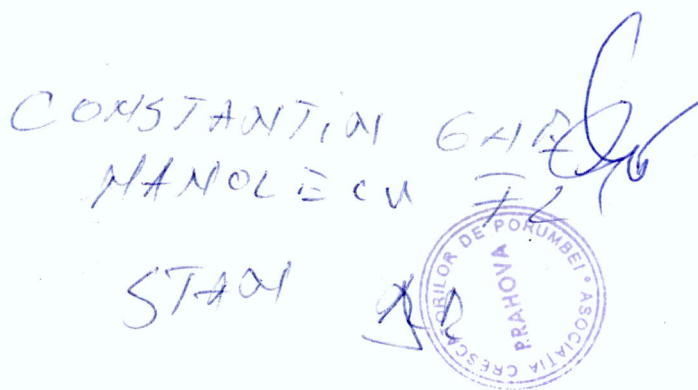 CONSTANTIN GHE
MANOLECU FL
STAN
ASOCIAȚIA CRESCĂTORILOR DE PORUMBEI
PRAHOVA